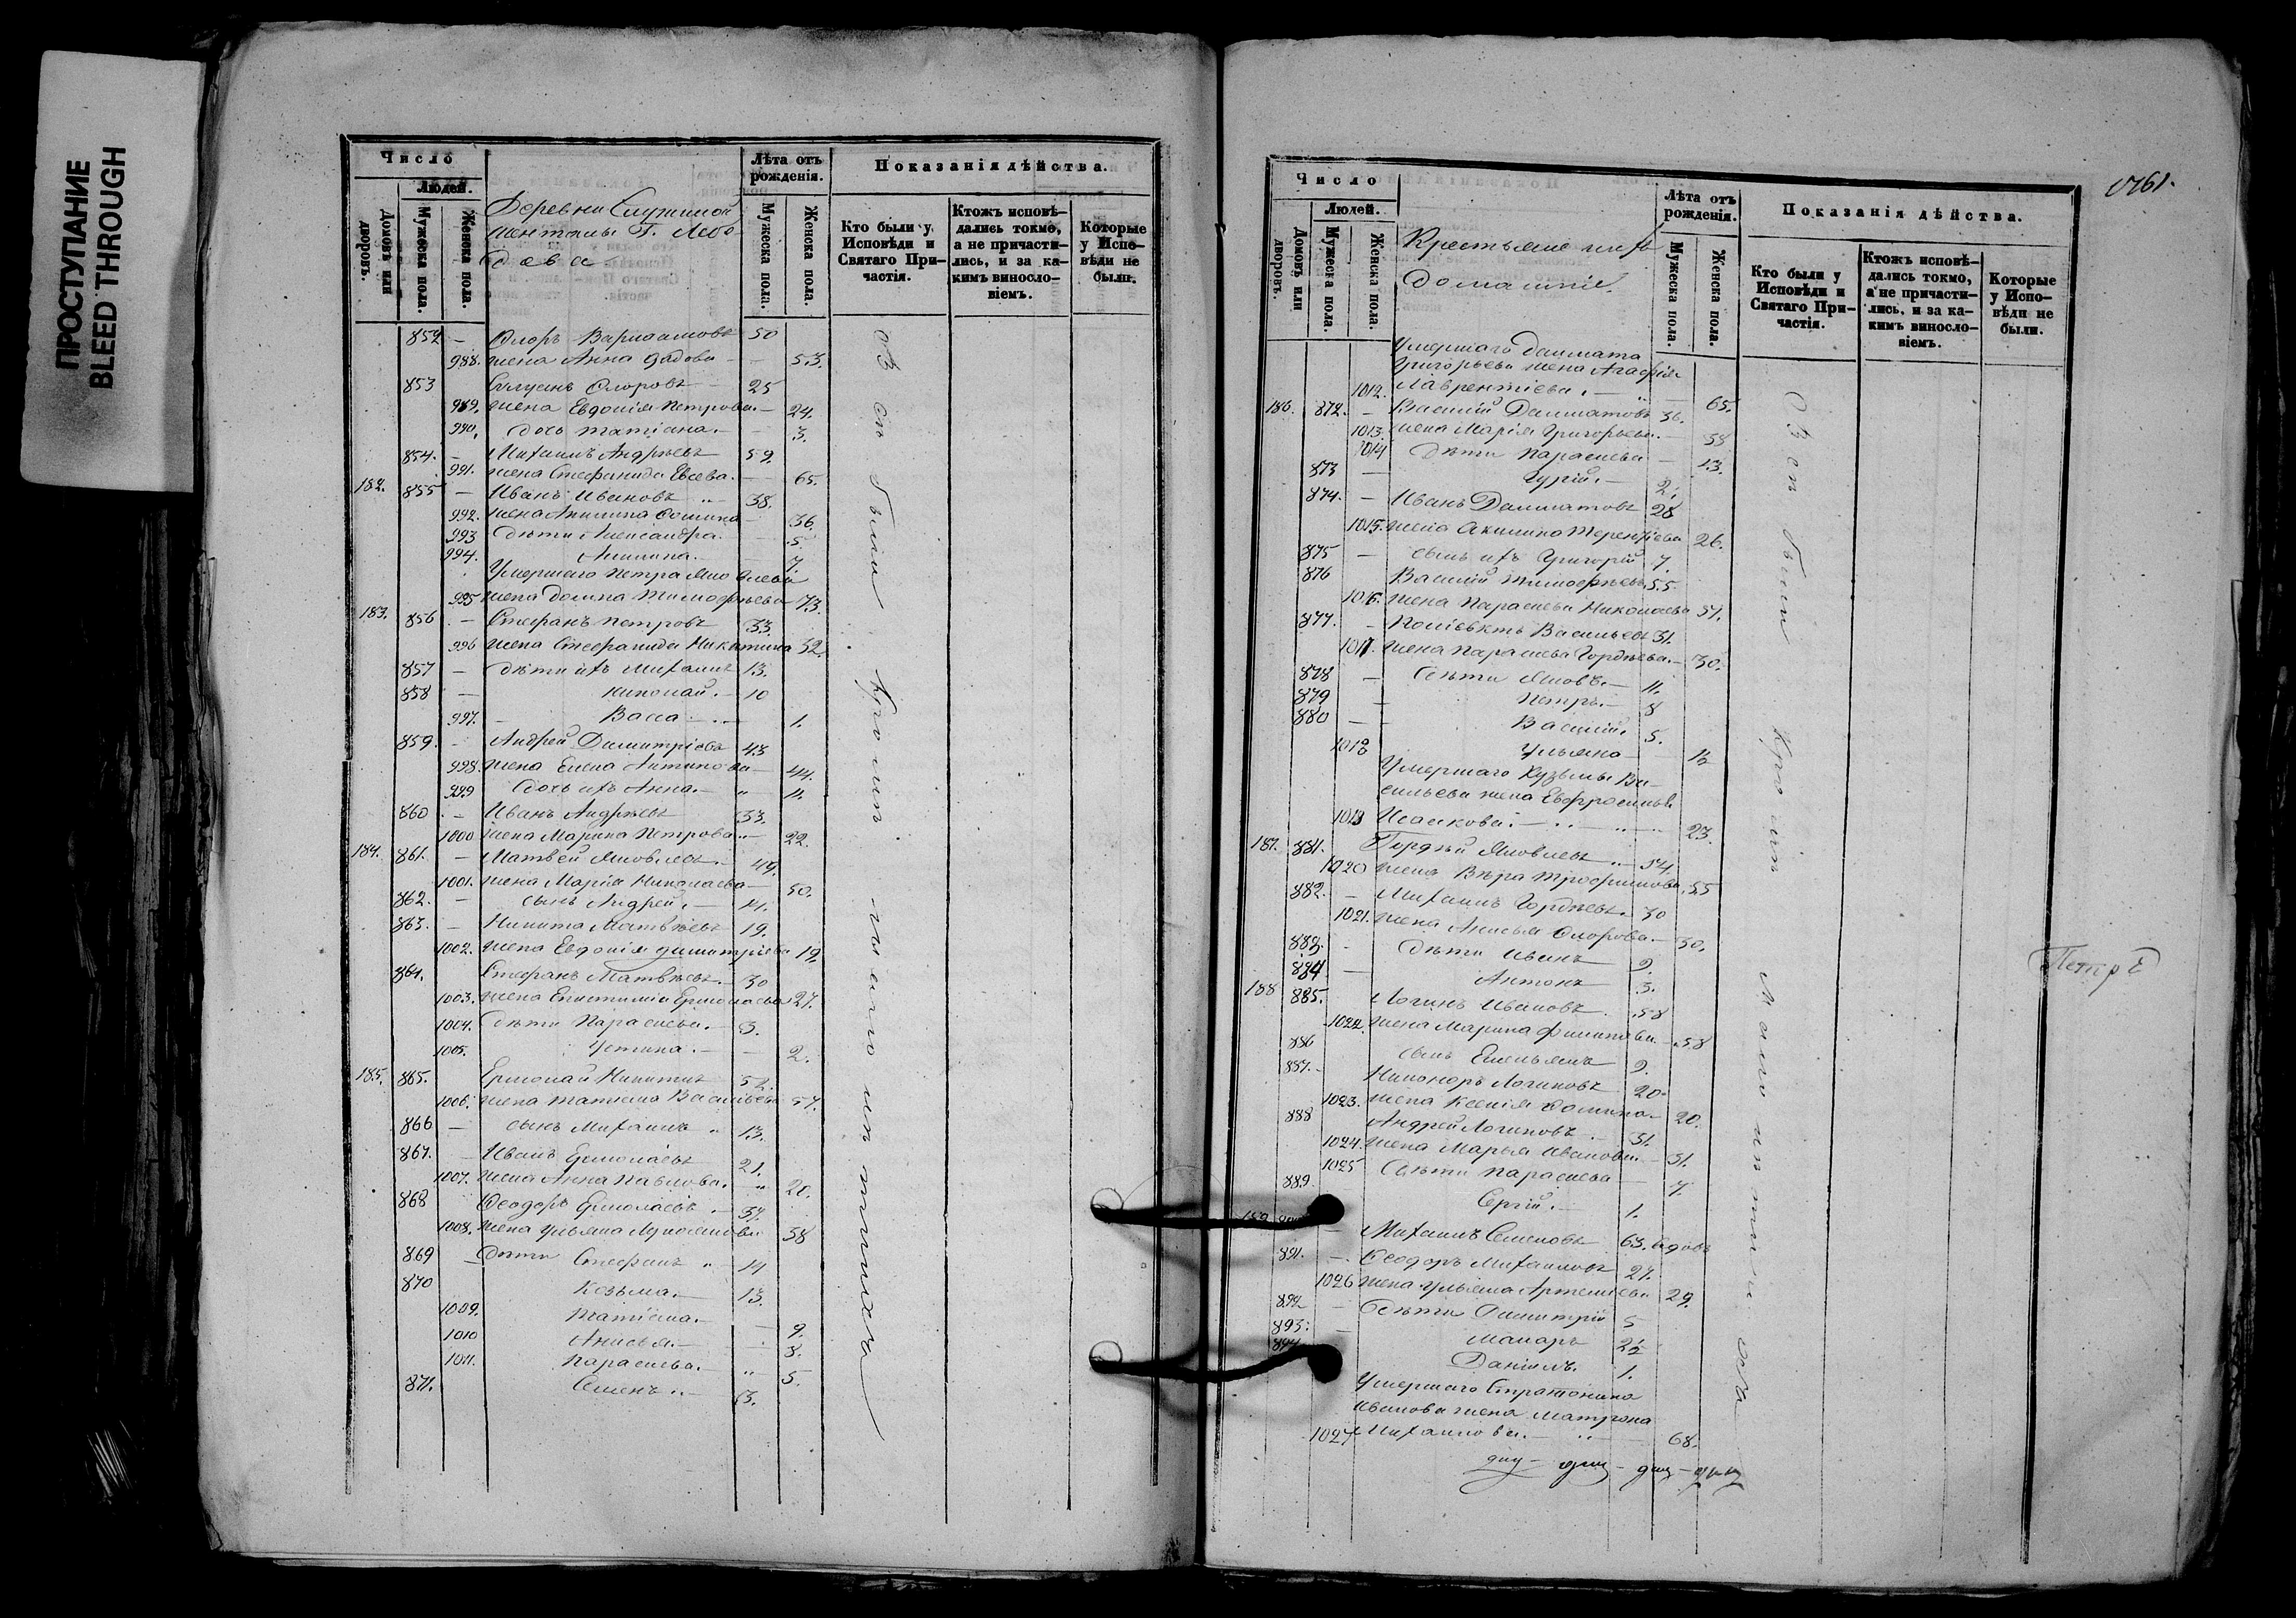 ПРОСТУПАНИЕ
BLEED THROUGH
Число
Людей.
Домовъ или дворовъ.
Мужеска пола.
Женска пола.
Деревни
Лѣта отъ рожденія.
Мужеска пола.
Женска пола.
Показанія дѣйства.
Кто были у Исповѣди и Святаго При-
частія.
Ктожъ исповѣ-
дались токмо,
а не причасти-
лись, и за ка-
кимъ винosло-
віемъ.
Которые
у Испо-
вѣди не
были.
852 — Флоръ Варлаамовъ 50
988. жена Анна — 53.
853 Флоровъ 25
989. жена Евдокія Петрова — 24.
990. дочь Татіана. — 3.
854. — Михаилъ Андрѣевъ 59.
991. жена Стефанида Евсева. — 65.
182. 855 — Иванъ Ивановъ „ 38.
992. жена Акилина Фомина — 36.
993 Дѣти Александра. — 5.
994. Акилина. — 7.
Умершаго Петра Яковлева
995 жена Домна Тимофѣева 73.
183. 856 — Стефанъ Петровъ 33.
996 жена Стефанида Никитина 32.
857 — Дѣти ихъ Михаилъ 13.
858 — Николай. — 10
997. — Васса — 1.
859. — Андрей Димитріевъ 43
998. жена Елена Антипова — 44.
999 Дочь ихъ Анна. — „ 11.
860 — Иванъ Андрѣевъ 33.
1000 жена Марина Петрова — 22.
184. 861. — Матвей Яковлевъ. — 49.
1001. жена Марія Николаева — 50.
862. — сынъ Андрей. — 14.
863. — Никита Матвѣевъ 19.
1002. жена Евдокія Димитріева 19.
864. Стефанъ Матвѣевъ. — 30
1003. жена Епистимія Ермолаева 27.
1004. Дѣти Параскева. — 3.
1005. Устина. — 2.
185. 865. Ермолай Никитинъ 52.
1006. жена Татіана Васильева 57.
866 — сынъ Михаилъ „ 13.
867. — Иванъ Ермолаевъ 21.
1007. жена Анна Павлова. „ 20.
868 Ѳеодоръ Ермолаевъ. — 37.
1008. жена Ульяна 38
869 — Дѣти Стефанъ „ 14
870 Козьма. — 13.
1009. Татіана. — 9.
1010 Анисья. — 8.
1011. Параскева. — „ 5.
871. Семенъ „ — 3.
Оз сп были. Кромѣ. малолѣтнихъ
Число
Людей.
Домовъ или дворовъ.
Мужеска пола.
Женска пола.
Крестьяне ихъ
домашніе.
Лѣта отъ рожденія.
Мужеска пола.
Женска пола.
Показанія дѣйства.
Кто были у Исповѣди и Святаго При-
частія.
Ктожъ исповѣ-
дались токмо,
а не причасти-
лись, и за ка-
кимъ винosло-
віемъ.
Которые
у Испо-
вѣди не
были.
Умершаго Далмата
Григорьева жена Агафія
1012. Лаврентіева. — 65.
186. 872. — Василій Далматовъ 36.
1013. жена Марія Григорьева. — 38
1014 Дѣти Параскева — 13.
873 — Гурій. — 2.
874. — Иванъ Далматовъ 28
1015. жена Акилина Терентіева 26.
875 — сынъ ихъ Григорій 7.
876 Василій Тимофѣевъ 55
1016. жена Параскева Николаева 57.
877. — Поліевктъ Васильевъ 31.
1017. жена Параскева Гордѣева. — 30.
878 — Дѣти Яковъ. — 11.
879 — Петръ. — 8
880 — — Василій. 5.
1018 Ульяна
Умершаго Кузьмы Ва-
сильева жена Евфросинья
1019 Исакова. — „ — 23.
187. 881. Гордѣй Яковлевъ „ — 54.
1020 жена Вѣра Трофимова 55
882. — Михаилъ Гордѣевъ. 30
1021. жена Анисья Флорова. — 30.
883. — Дѣти Иванъ 9.
884 — Антонъ 3.
188 885. Логинъ Ивановъ. 58
1022. жена Марина Филипова — 58
886 сынъ Емельянъ 9.
887. Никоноръ Логиновъ 20
1023. жена Ксенія Фомина — 20.
888 Андрей Логиновъ. — 31.
1024. жена Марья Иванова — 31.
1025 Дѣти Параскева — 7.
889. Сергій. — 1.
189 — Михаилъ Семеновъ 63. вдовъ
891. — Ѳеодоръ Михаиловъ 27.
1026 жена Ульяна Артемьева 29.
892 — Дѣти Димитрій 5
893: — Макаръ
894 Даніилъ. 1.
Умершаго Стратоника
Иванова жена Матрона
1027 Михаилова. — „ — 68.
Петръ